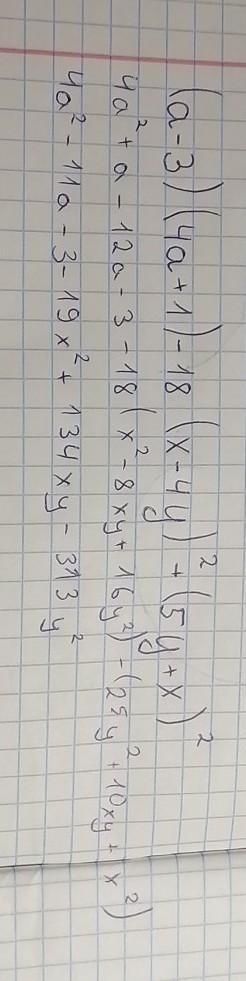 (a-3)(4a+1)-18(x-4y)²+(5y+x)²
4a²+a-12a-3-18(x²-8xy+16y²)-(25y²+10xy+x²)
4a²-11a-3-19x²+134xy-313y²